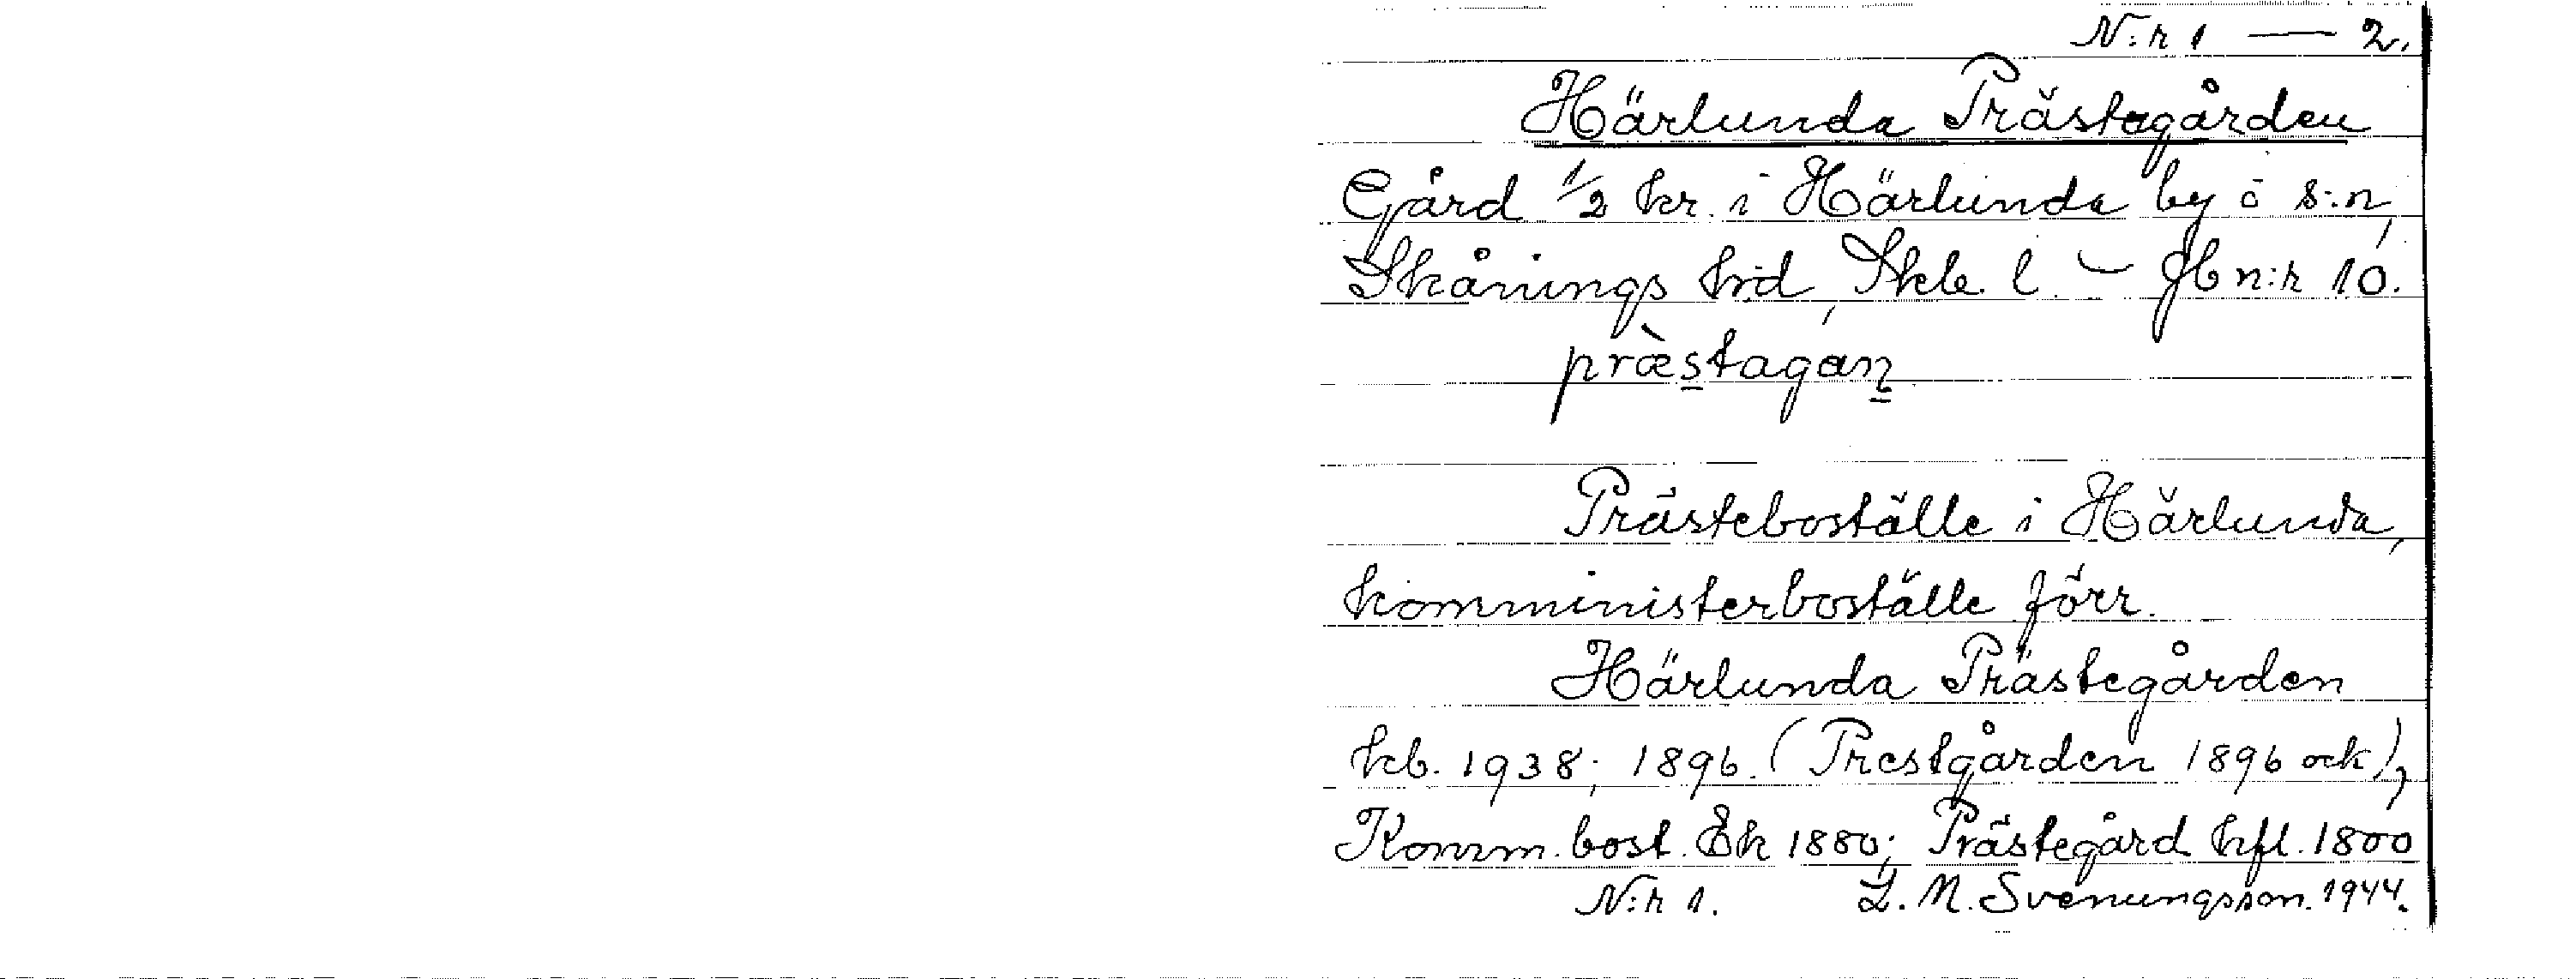 N:r 1 — 2.
Härlunda Prästagården
Gård 1/2 kr. i Härlunda by o s:n,
Skånings hd, Skb. l. – Jb n:r 10.
præ̀stagan
Prästeboställe i Härlunda,
komministerboställe förr.
Härlunda Prästegården
kb. 1938; 1896. (Prestgården 1896 ock),
Komm. bost. Ek 1880; Prästegård hfl. 1800
N:r 1. L. M. Svenungsson. 1944.